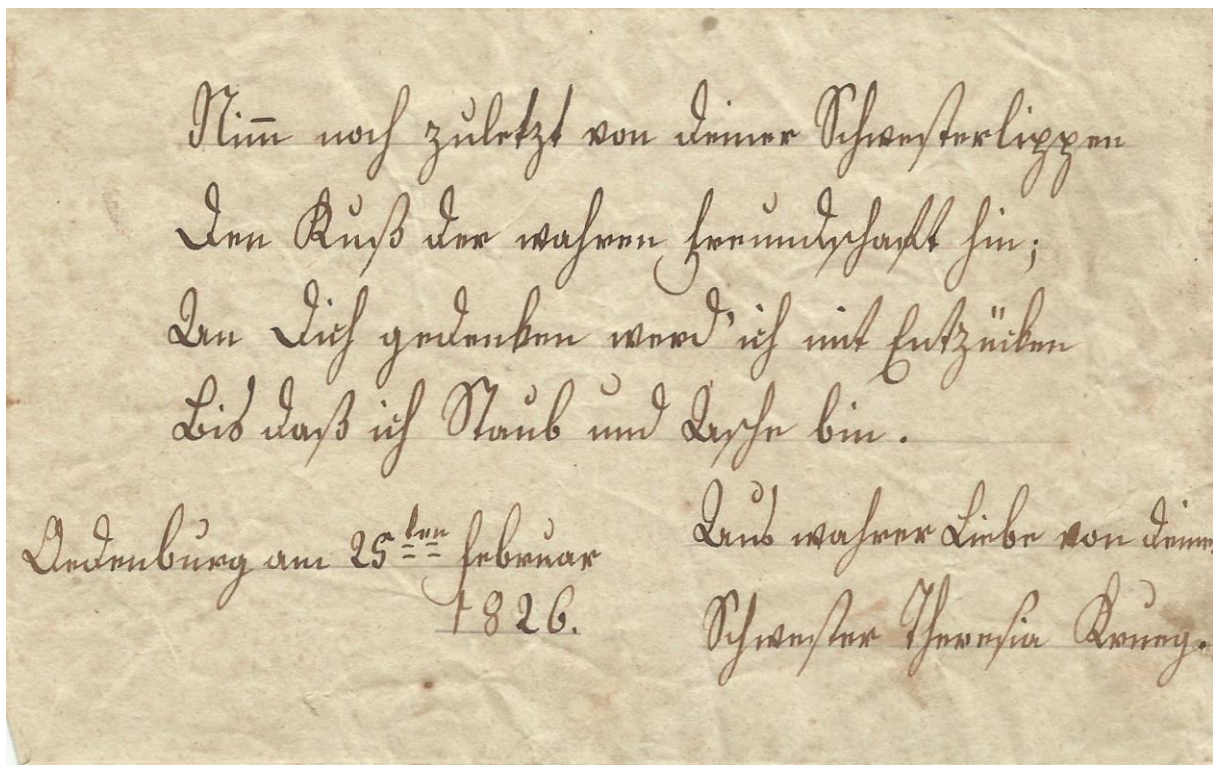 Nim̅ noch zuletzt von deiner Schwesterlippen
Den Kuß der wahren Freundschaft hin;
An Dich gedenken werd' ich mit Entzücken
Bis daß ich Staub und Asche bin.
Oedenburg am 25ten Februar
1826.
Aus wahrer Liebe von deiner
Schwester Theresia Krueg.